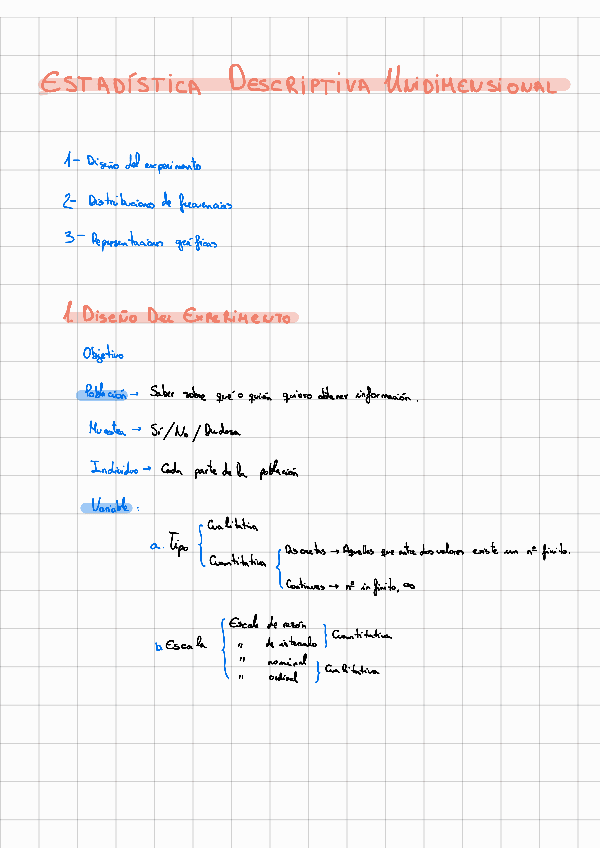 ESTADÍSTICA DESCRIPTIVA UNIDIMENSIONAL
1- Diseño del experimento
2- Distribuciones de frecuencias
3- Representaciones gráficas
1. DISEÑO DEL EXPERIMENTO
Objetivo
Población → Saber sobre qué o quién quiero obtener información.
Muestra → Sí/No/Dudosa
Individuo → Cada parte de la población
Variable:
Cualitativa
a. Tipo
Discretas → Aquellas que entre dos valores existe un nº finito.
Cuantitativa
Continuas → nº infinito, ∞
Escala de razón
Cuantitativa
b. Escala " de intervalo
" nominal
Cualitativa
" ordinal